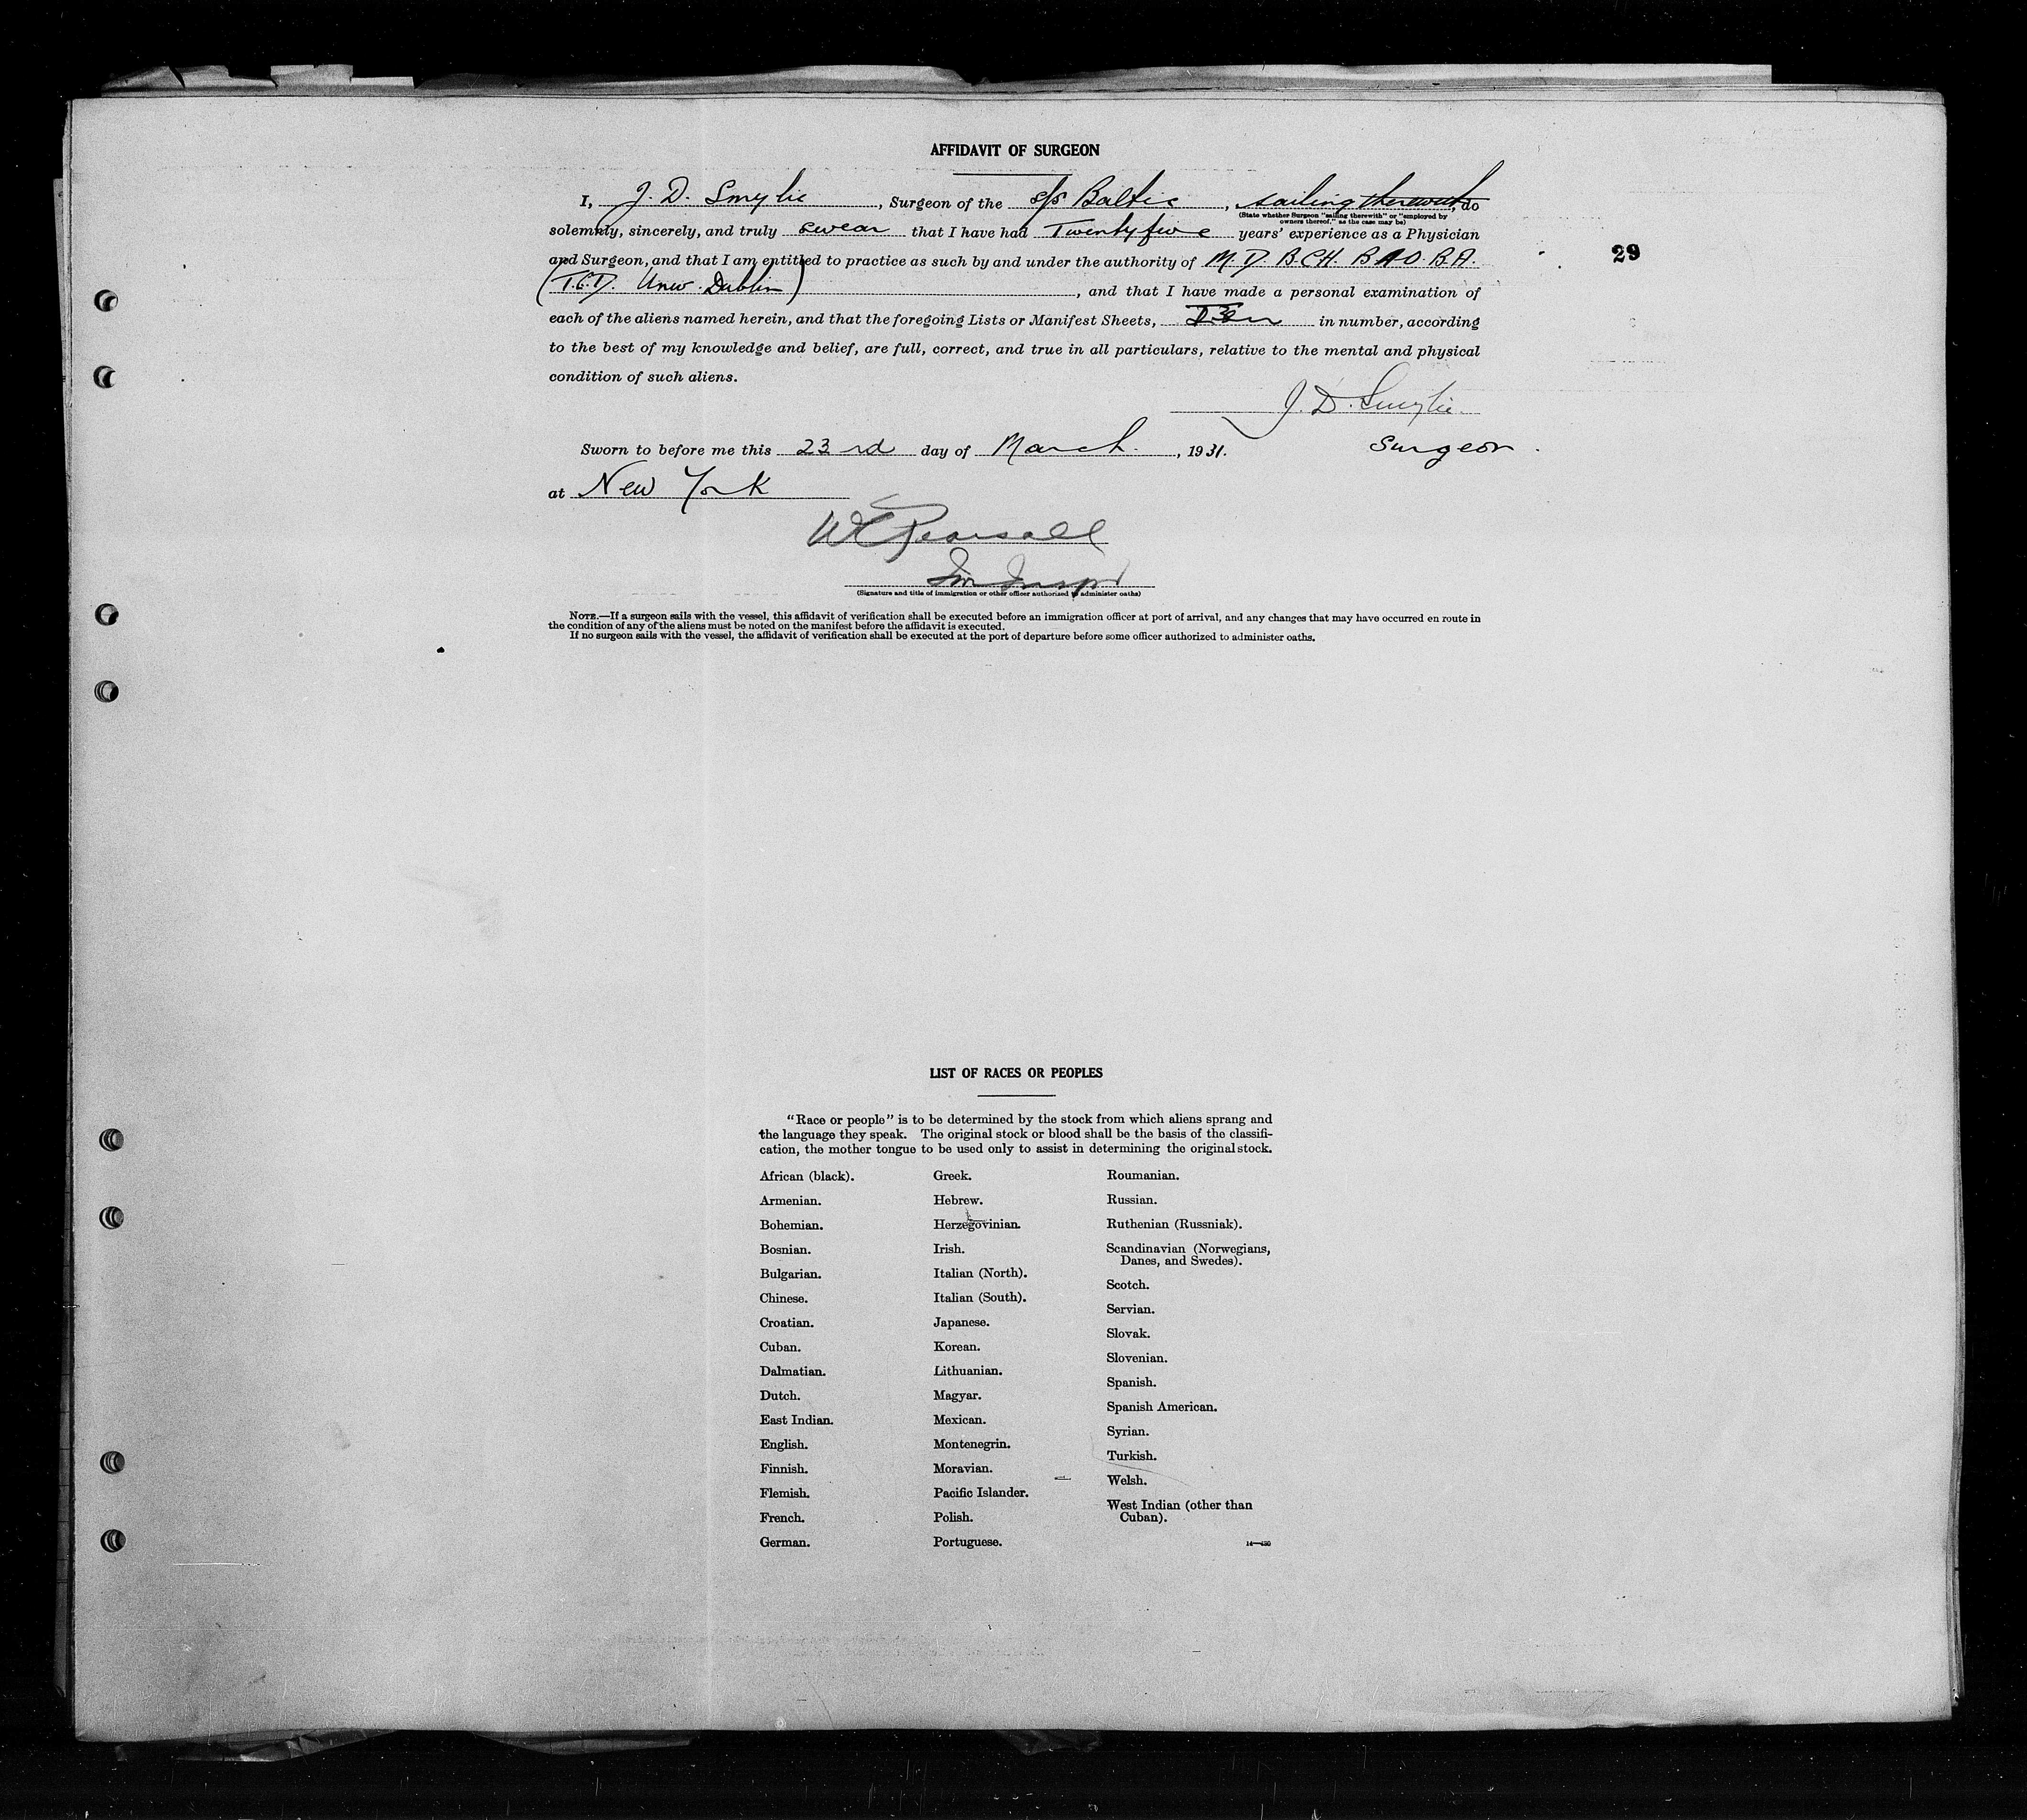 AFFIDAVIT OF SURGEON
I, J. D. Smylie, Surgeon of the s/s Baltic, sailing therewith, do
(State whether Surgeon "sailing therewith" or "employed by
owners thereof," as the case may be)
solemnly, sincerely, and truly swear that I have had Twenty five years' experience as a Physician
29
and Surgeon, and that I am entitled to practice as such by and under the authority of M. D. B.CH. B A O. B.A.
(T.C.D. Univ. Dublin), and that I have made a personal examination of
each of the aliens named herein, and that the foregoing Lists or Manifest Sheets, in number, according
to the best of my knowledge and belief, are full, correct, and true in all particulars, relative to the mental and physical
condition of such aliens.
J. D. Smylie
Surgeon.
Sworn to before me this 23rd day of March., 1931.
at New York
Pearsall
Im Inspr
(Signature and title of immigration or other officer authorized to administer oaths)
NOTE.—If a surgeon sails with the vessel, this affidavit of verification shall be executed before an immigration officer at port of arrival, and any changes that may have occurred en route in
the condition of any of the aliens must be noted on the manifest before the affidavit is executed.
If no surgeon sails with the vessel, the affidavit of verification shall be executed at the port of departure before some officer authorized to administer oaths.
LIST OF RACES OR PEOPLES
"Race or people" is to be determined by the stock from which aliens sprang and
the language they speak. The original stock or blood shall be the basis of the classifi-
cation, the mother tongue to be used only to assist in determining the original stock.
African (black).
Armenian.
Bohemian.
Bosnian.
Bulgarian.
Chinese.
Croatian.
Cuban.
Dalmatian.
Dutch.
East Indian.
English.
Finnish.
Flemish.
French.
German.
Greek.
Hebrew.
Herzegovinian.
Irish.
Italian (North).
Italian (South).
Japanese.
Korean.
Lithuanian.
Magyar.
Mexican.
Montenegrin.
Moravian.
Pacific Islander.
Polish.
Portuguese.
Roumanian.
Russian.
Ruthenian (Russniak).
Scandinavian (Norwegians,
Danes, and Swedes).
Scotch.
Servian.
Slovak.
Slovenian.
Spanish.
Spanish American.
Syrian.
Turkish.
Welsh.
West Indian (other than
Cuban).